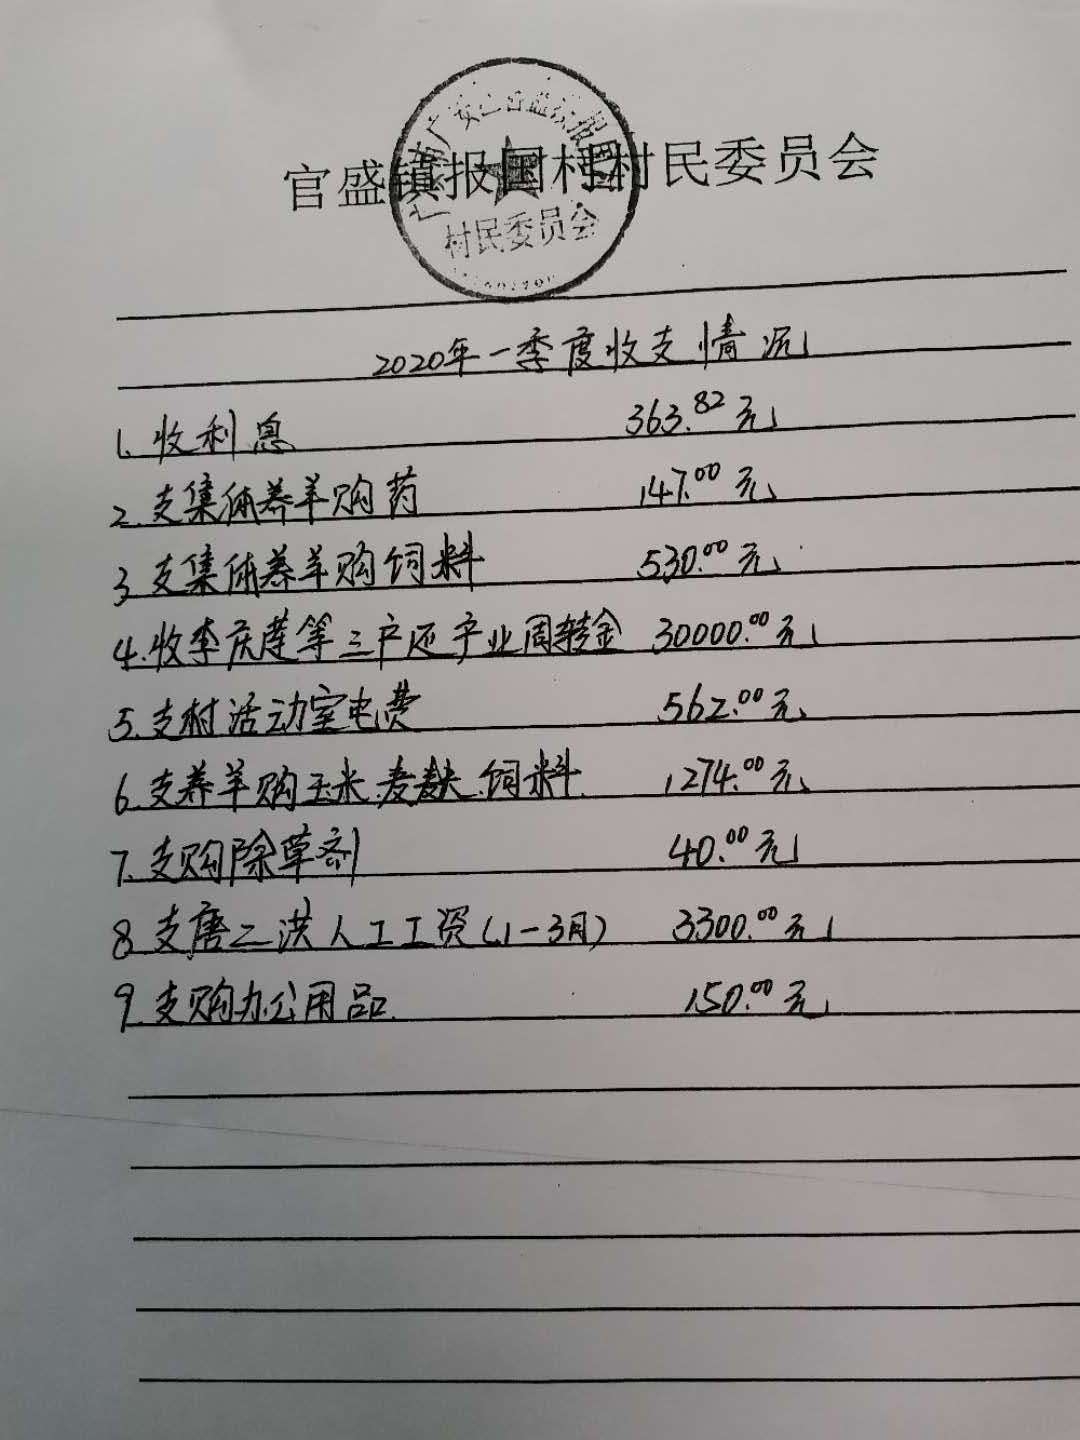 官盛镇报国村村民委员会
村民委员会
2020年一季度收支情况
1. 收利息 363.82元
2. 支集体养羊购药 147.00元
3. 支集体养羊购饲料 530.00元
4. 收李庆莲等三户还产业周转金 30000.00元
5. 支村活动室电费 562.00元
6. 支养羊购玉米.麦麸.饲料. 1274.00元
7. 支购除草剂 40.00元
8. 支唐二洪人工工资(1-3月) 3300.00元
9. 支购办公用品. 150.00元